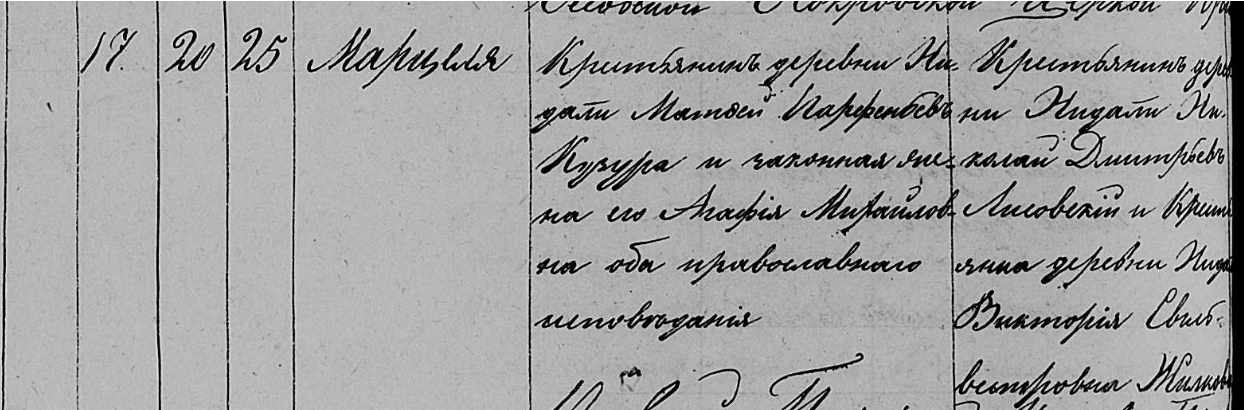 Покровской Церкви
17. 20 25 Марцеля
Крестьянинъ деревни Ни-
дали Матѳей Парфеньевъ
Кузура и законная же-
на его Агафія Михайлов-
на оба православнаго
исповѣданія
Крестьянинъ дерев-
ни Нидали Ни-
колай Дмитрьевъ
Лисовскій и Кресть
янка деревни
Викторія Сель-
вестровна